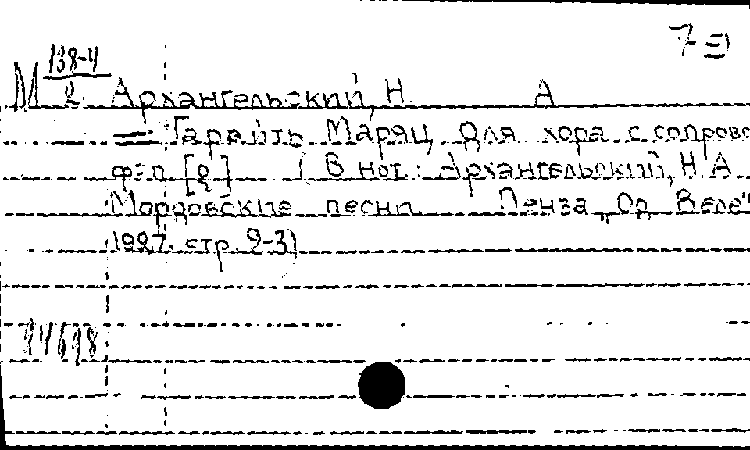 7-Э
М 138-4
2 Архангельский, Н А
Гаряйть Маряц для хора с сопрово
ф-п [2] (В нот: Архангельский, Н А
Мордовские песни Пенза „Од Веле"
1927. стр. 2-3)